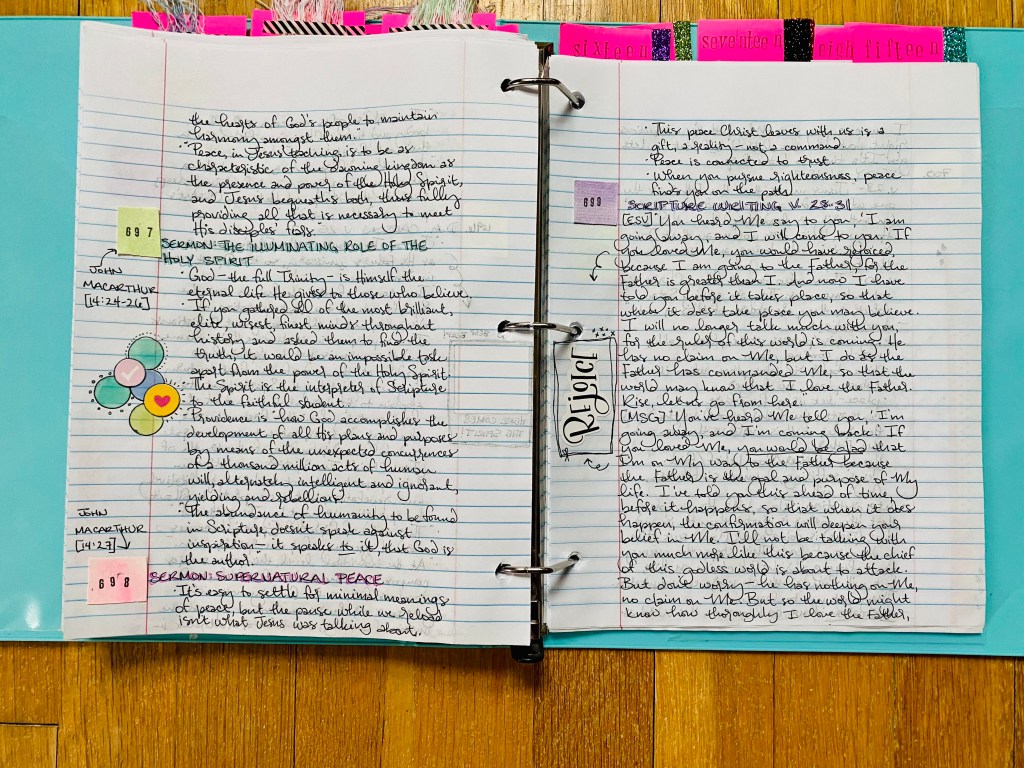 sixteen
seventeen
eigh
fifteen
the hearts of God's people to maintain
harmony amongst them."
· "Peace, in Jesus' teaching is to be as
characteristic of the dawning kingdom as
the presence and power of the Holy Spirit,
and Jesus bequeaths both, thus fully
providing all that is necessary to meet
His disciples' fears.
697
SERMON: THE ILLUMINATING ROLE OF THE
HOLY SPIRIT
JOHN
MACARTHUR
[14:24-26]
· God - the full Trinity - is Himself the
eternal life He gives to those who believe.
· If you gathered all of the most brilliant,
elite, wisest, finest minds throughout
history and asked them to find the
truth, it would be an impossible task
apart from the power of the Holy Spirit.
· The Spirit is the interpreter of Scripture
to the faithful student.
· Providence is "how God accomplishes the
development of all His plans and purposes
by means of the unexpected concurrences
of a thousand million acts of human
will, alternately intelligent and ignorant,
yielding and rebellious."
· "The abundance of humanity to be found
in Scripture doesn't speak against
inspiration - it speaks to it, that God is
the author."
JOHN
MACARTHUR
[14:27]
698
SERMON: SUPERNATURAL PEACE
· It's easy to settle for minimal meanings
of peace, but the pause while we reload
isn't what Jesus was talking about.
· This peace Christ leaves with us is a
gift, a reality - not a command.
· Peace is connected to trust.
· When you pursue righteousness, peace
finds you on the path.
699
SCRIPTURE WRITING V. 28-31
[ESV] "You heard Me say to you, 'I am
going away, and I will come to you.' If
you loved Me, you would have rejoiced,
because I am going to the Father, for the
Father is greater than I. And now I have
told you before it takes place, so that
when it does take place you may believe.
I will no longer talk much with you,
for the ruler of this world is coming. He
has no claim on Me, but I do as the
Father has commanded Me, so that the
world may know that I love the Father.
Rise, let us go from here."
REJOICE
[MSG] "You've heard Me tell you, 'I'm
going away, and I'm coming back.' If
you loved Me, you would be glad that
I'm on My way to the Father because
the Father is the goal and purpose of My
life. I've told you this ahead of time,
before it happens, so that when it does
happen, the confirmation will deepen your
belief in Me. I'll not be talking with
you much more like this because the chief
of this godless world is about to attack.
But don't worry - he has nothing on Me,
no claim on Me. But so the world might
know how thoroughly I love the Father,